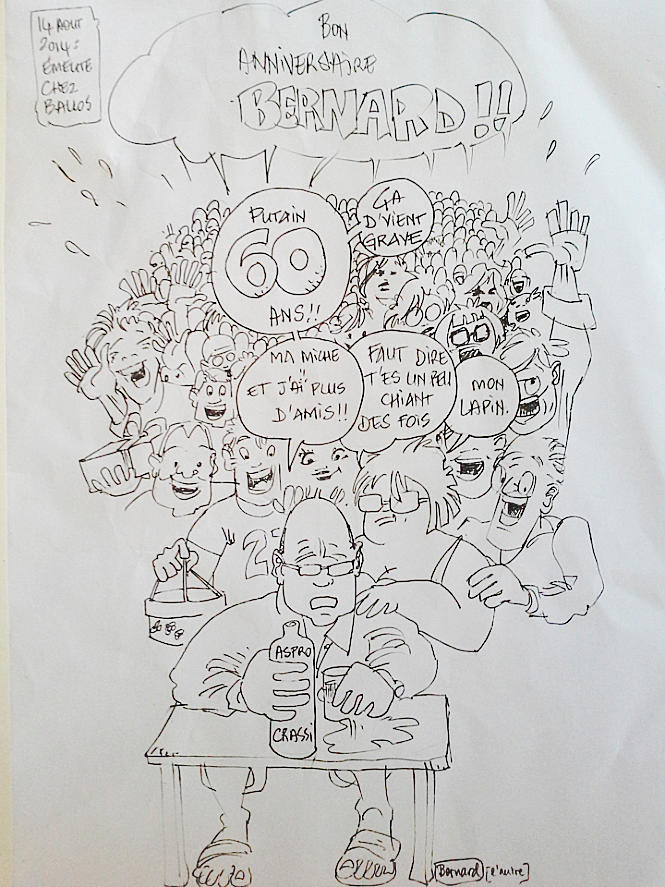 14 AOUT
2014 :
ÉMEUTE
CHEZ
BALLOS
BON
ANNIVERSAIRE
BERNARD !!
PUTAIN
60
ANS !!
ÇA
D'VIENT
GRAVE
MA MICHE
ET J'AI PLUS
D'AMIS !!
FAUT DIRE
T'ES UN PEU
CHIANT
DES FOIS
MON
LAPIN.
2
ASPRO
CRASSI
Bernard [l'autre]